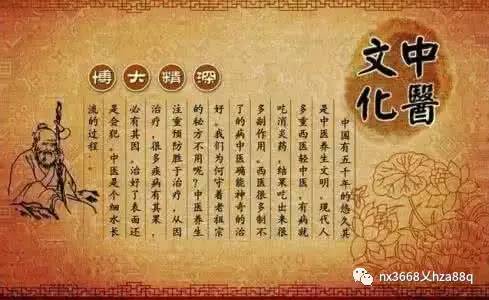 中醫
文化
博大精深
中国有五千年的悠久其
是中医养生文明。现代人
多重西医轻中医，有病就
吃消炎药，结果吃出来很
多副作用。西医很多制不
了的病中医能神奇的治
好。我们为何守着老祖宗
的秘方不用呢？中医养生
注重预防胜于治疗，从因
治疗，很多疾病有其果，
必有其因。治好了表面还
是会犯。中医是个细水长
流的过程...
nx3668乂hza88q